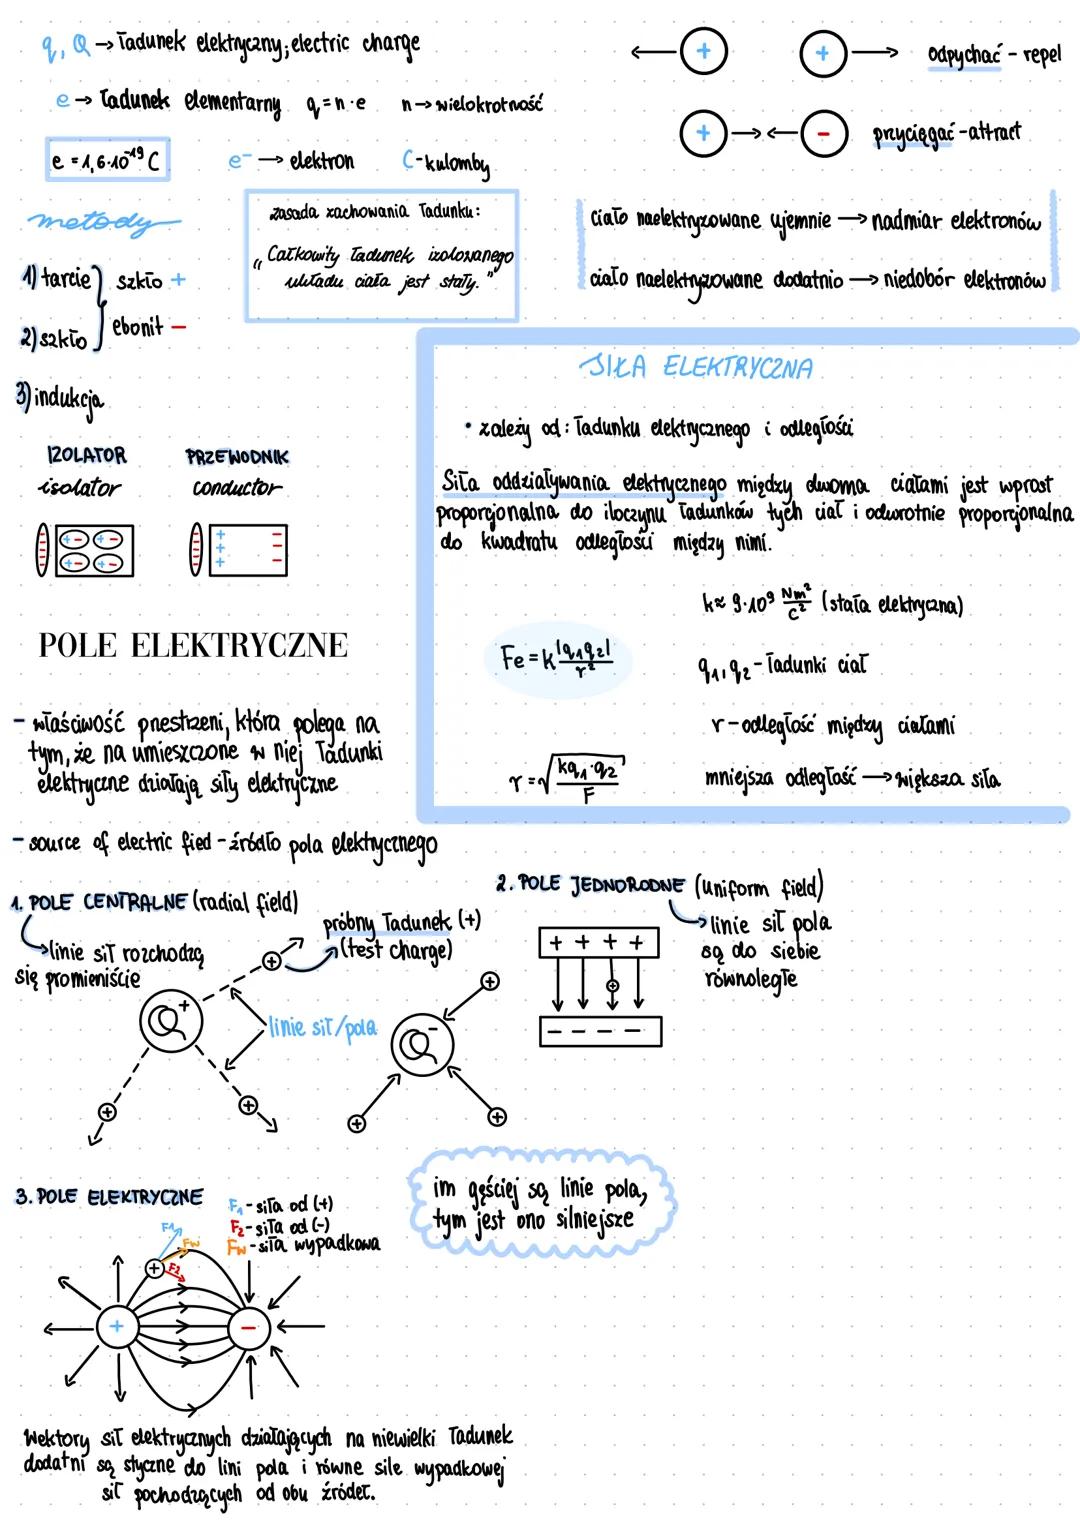 q, Q → ładunek elektryczny; electric charge
e → ładunek elementarny q = n · e n → wielokrotność
e = 1,6·10⁻¹⁹ C
e⁻ → elektron C - kulomby
+ + odpychać - repel
+ - przyciągać - attract
metody
1) tarcie
2) szkło
szkło +
ebonit -
3) indukcja
zasada zachowania ładunku:
„Całkowity ładunek izolowanego
układu ciała jest stały."
ciało naelektryzowane ujemnie → nadmiar elektronów
ciało naelektryzowane dodatnio → niedobór elektronów
IZOLATOR
isolator
PRZEWODNIK
conductor
SIŁA ELEKTRYCZNA
• zależy od: ładunku elektrycznego i odległości
Siła oddziaływania elektrycznego między dwoma ciałami jest wprost
proporcjonalna do iloczynu ładunków tych ciał i odwrotnie proporcjonalna
do kwadratu odległości między nimi.
k ≈ 9·10⁹ Nm²/C² (stała elektryczna)
Fe = k |q₁q₂|/r²
q₁, q₂ - ładunki ciał
r - odległość między ciałami
r = √(kq₁·q₂/F)
mniejsza odległość → większa siła
POLE ELEKTRYCZNE
- właściwość przestrzeni, która polega na
tym, że na umieszczone w niej ładunki
elektryczne działają siły elektryczne
- source of electric fied - źródło pola elektrycznego
1. POLE CENTRALNE (radial field)
→ linie sił rozchodzą
się promieniście
próbny ładunek (+)
(test charge)
linie sił/pola
Q +
Q -
2. POLE JEDNORODNE (uniform field)
→ linie sił pola
są do siebie
równoległe
+ + + +
- - - -
im gęściej są linie pola,
tym jest ono silniejsze
3. POLE ELEKTRYCZNE
F₁ - siła od (+)
F₂ - siła od (-)
Fw - siła wypadkowa
F₁
Fw
F₂
+ -
Wektory sił elektrycznych działających na niewielki ładunek
dodatni są styczne do lini pola i równe sile wypadkowej
sił pochodzących od obu źródeł.